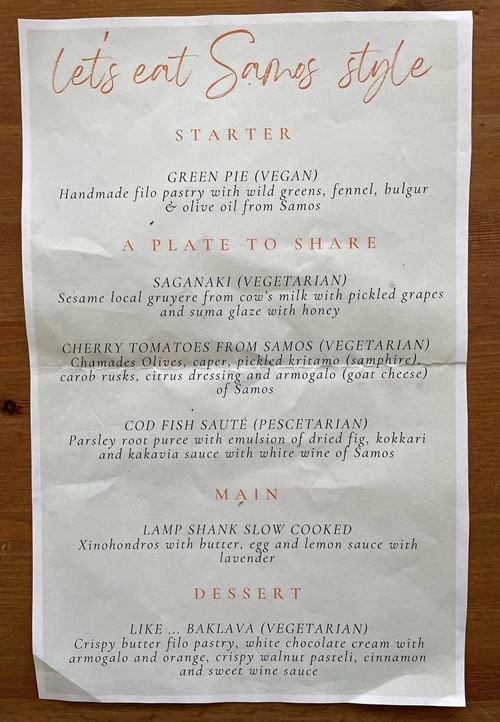 let's eat Samos style
STARTER
GREEN PIE (VEGAN)
Handmade filo pastry with wild greens, fennel, bulgur
& olive oil from Samos
A PLATE TO SHARE
SAGANAKI (VEGETARIAN)
Sesame local gruyere from cow's milk with pickled grapes
and suma glaze with honey
CHERRY TOMATOES FROM SAMOS (VEGETARIAN)
Chamades Olives, caper, pickled kritamo (samphire),
carob rusks, citrus dressing and armogalo (goat cheese)
of Samos
COD FISH SAUTÉ (PESCETARIAN)
Parsley root puree with emulsion of dried fig, kokkari
and kakavia sauce with white wine of Samos
MAIN
LAMP SHANK SLOW COOKED
Xinohondros with butter, egg and lemon sauce with
lavender
DESSERT
LIKE ... BAKLAVA (VEGETARIAN)
Crispy butter filo pastry, white chocolate cream with
armogalo and orange, crispy walnut pasteli, cinnamon
and sweet wine sauce